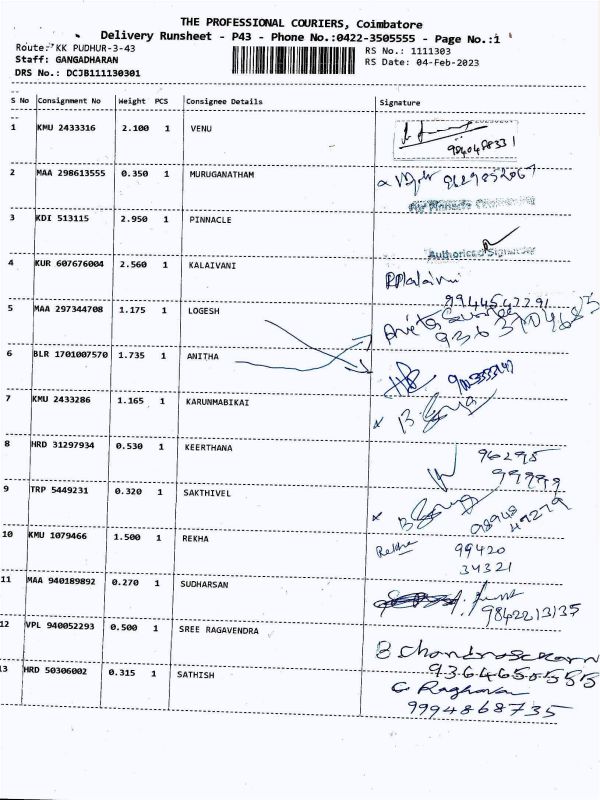 THE PROFESSIONAL COURIERS, Coimbatore
Delivery Runsheet - P43 - Phone No.:0422-3505555 - Page No.:1
Route: KK PUDHUR-3-43
RS No.: 1111303
Staff: GANGADHARAN
RS Date: 04-Feb-2023
DRS No.: DCJB111130301
S No Consignment No Weight PCS Consignee Details Signature
1 KMU 2433316 2.100 1 VENU
2 MAA 298613555 0.350 1 MURUGANATHAM
3 KDI 513115 2.950 1 PINNACLE
Authorised Signatory
4 KUR 607676004 2.560 1 KALAIVANI
5 MAA 297344708 1.175 1 LOGESH
6 BLR 1701007570 1.735 1 ANITHA
7 KMU 2433286 1.165 1 KARUNMABIKAI
8 HRD 31297934 0.530 1 KEERTHANA
96295
99999
9 TRP 5449231 0.320 1 SAKTHIVEL
10 KMU 1079466 1.500 1 REKHA Rekha 99420
34321
11 MAA 940189892 0.270 1 SUDHARSAN
9842213135
12 VPL 940052293 0.500 1 SREE RAGAVENDRA
B Chandrasekaran
13 HRD 50306002 0.315 1 SATHISH
9364650555
G Raghavan
9994868735